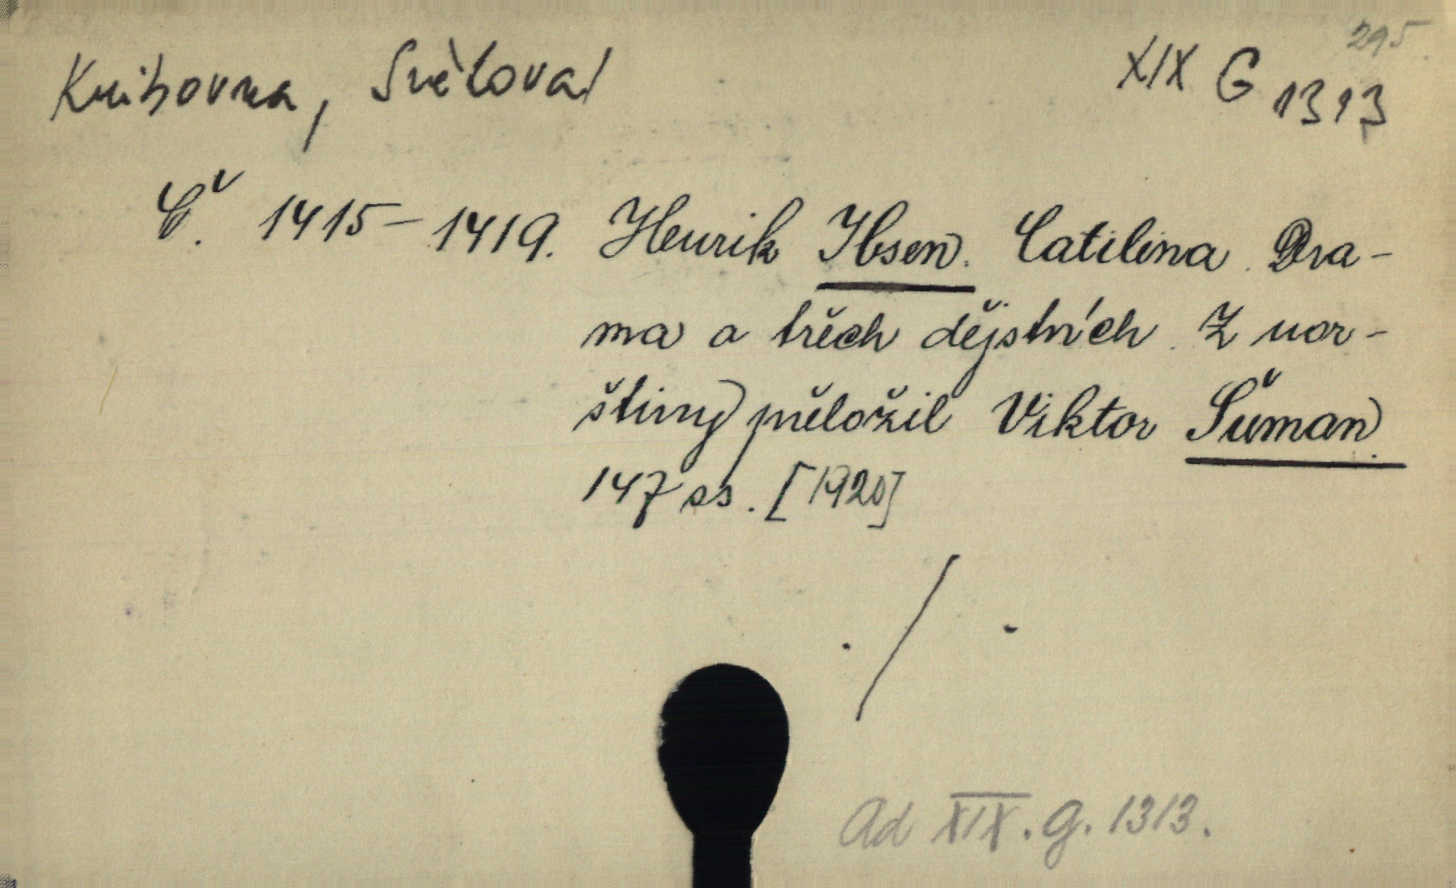 295
Knihovna, Světová
XIX G 1313
Č. 1415–1419. Henrik Ibsen. Catilina. Dra-
ma o třech dějstvích. Z nor-
štiny přeložil Viktor Šuman.
147 ss. [1920]
./.
Ad XIX. g. 1313.